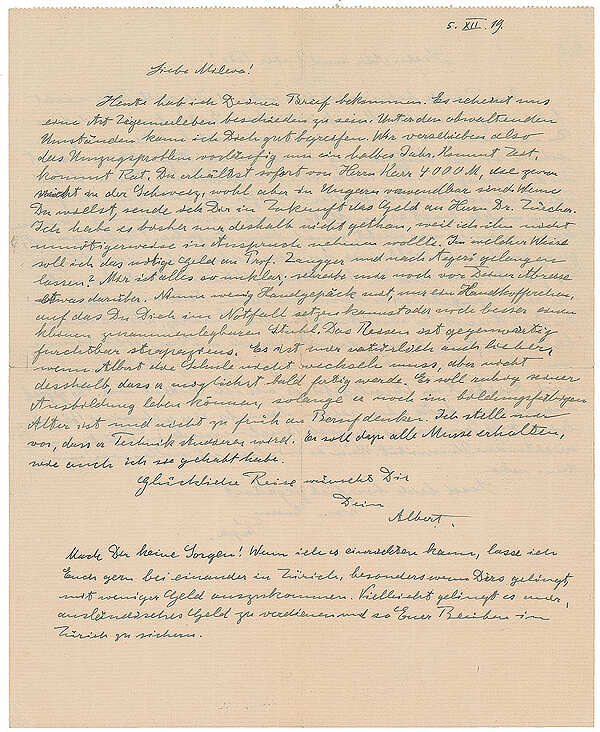 5. XII. 19.
Liebe Mileva!
Heute hab ich Deinen Brief bekommen. Es scheint uns
eine Art Zigeunerleben beschieden zu sein. Unter den obwaltenden
Umständen kann ich Dich gut begreifen. Wir verschieben also
das Umzugsproblem vorläufig um ein halbes Jahr. Kommt Zeit,
kommt Rat. Du erhältst sofort von Herrn Karr 4000 M, die zwar
nicht in der Schweiz, wohl aber in Ungarn verwendbar sind. Wenn
Du willst, sende ich Dir in Zukunft das Geld an Herrn Dr. Zürcher.
Ich habe es bisher nur deshalb nicht gethan, weil ich ihn nicht
unnötigerweise in Anspruch nehmen wollte. In welcher Weise
soll ich das nötige Geld an Prof. Zangger und nach Aegeri gelangen
lassen? Mir ist alles so unklar; schreibe mir noch vor Deiner Abreise
etwas darüber. Nimm wenig Handgepäck mit, nur ein Handköfferchen,
auf das Du Dich im Notfall setzen kannst oder noch besser einen
kleinen zusammenlegbaren Stuhl. Das Reisen ist gegenwärtig
furchtbar strapaziös. Es ist mir natürlich auch lieber,
wenn Albert die Schule nicht wechseln muss, aber nicht
desshalb, dass er möglichst bald fertig werde. Er soll ruhig seiner
Ausbildung leben können, solange er noch im bildungsfähigen
Alter ist und nicht zu früh an Beruf denken. Ich stelle mir
vor, dass er Technik studieren wird. Er soll dazu alle Musse erhalten,
wie auch ich sie gehabt habe.
Glückliche Reise wünscht Dir
Dein
Albert.
Mach Dir keine Sorgen! Wenn ich es einrichten kann, lasse ich
Euch gern bei einander in Zürich, besonders wenn Dirs gelingt,
mit weniger Geld auszukommen. Vielleicht gelingt es mir,
ausländisches Geld zu verdienen und so Euer Bleiben in
Zürich zu sichern.